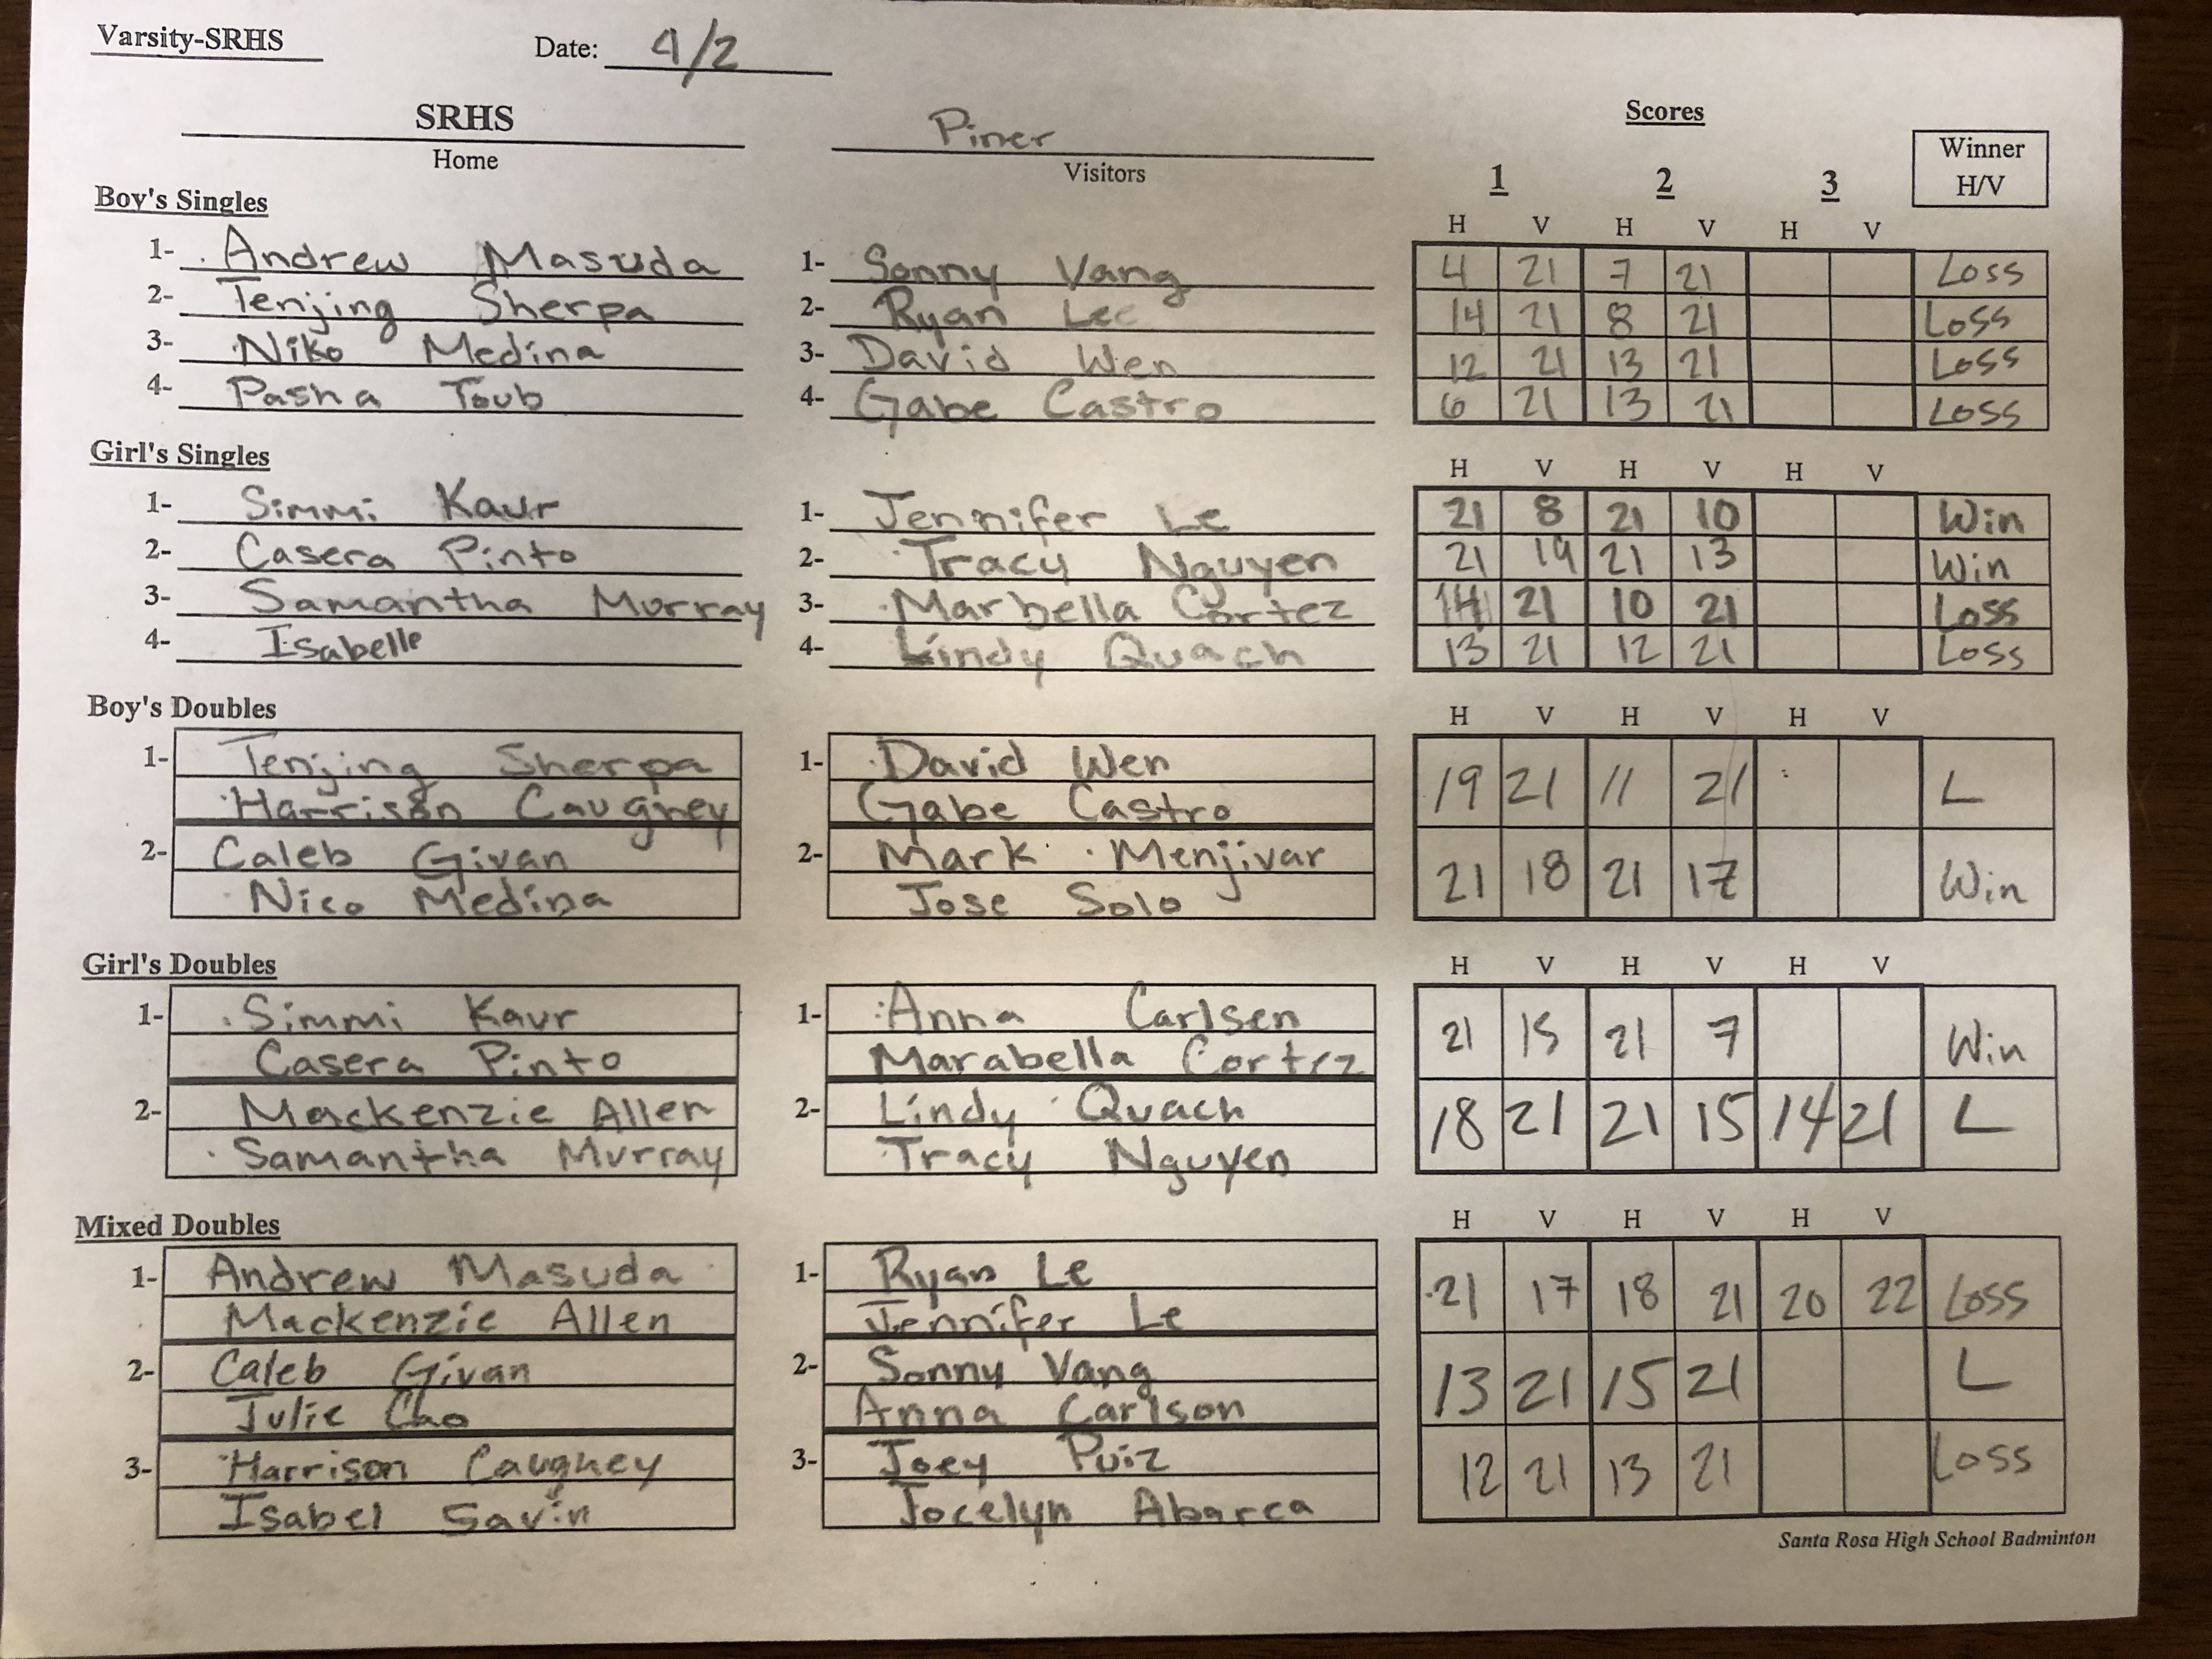 Varsity-SRHS Date: 4/2
SRHS Piner Scores
Home Visitors 1 2 3 Winner H/V
Boy's Singles H V H V H V
1- Andrew Masuda 1- Sonny Vang 4 21 7 21 Loss
2- Tenjing Sherpa 2- Ryan Lee 14 21 8 21 Loss
3- Niko Medina 3- David Wen 12 21 13 21 Loss
4- Pasha Toub 4- Gabe Castro 6 21 13 21 Loss
Girl's Singles H V H V H V
1- Simmi Kaur 1- Jennifer Le 21 8 21 10 Win
2- Casera Pinto 2- Tracy Nguyen 21 19 21 13 Win
3- Samantha Murray 3- Marbella Cortez 14 21 10 21 Loss
4- Isabelle 4- Lindy Quach 13 21 12 21 Loss
Boy's Doubles H V H V H V
1- Tenjing Sherpa 1- David Wen 19 21 11 21 L
Harrison Caughey Gabe Castro
2- Caleb Givan 2- Mark Menjivar 21 18 21 17 Win
Nico Medina Jose Solo
Girl's Doubles H V H V H V
1- Simmi Kaur 1- Anna Carlsen 21 15 21 7 Win
Casera Pinto Marabella Cortez
2- Mackenzie Allen 2- Lindy Quach 18 21 21 15 14 21 L
Samantha Murray Tracy Nguyen
Mixed Doubles H V H V H V
1- Andrew Masuda 1- Ryan Le 21 17 18 21 20 22 Loss
Mackenzie Allen Jennifer Le
2- Caleb Givan 2- Sonny Vang 13 21 15 21 L
Julie Cao Anna Carlson
3- Harrison Caughey 3- Joey Puiz 12 21 13 21 Loss
Isabel Savin Jocelyn Abarca
Santa Rosa High School Badminton